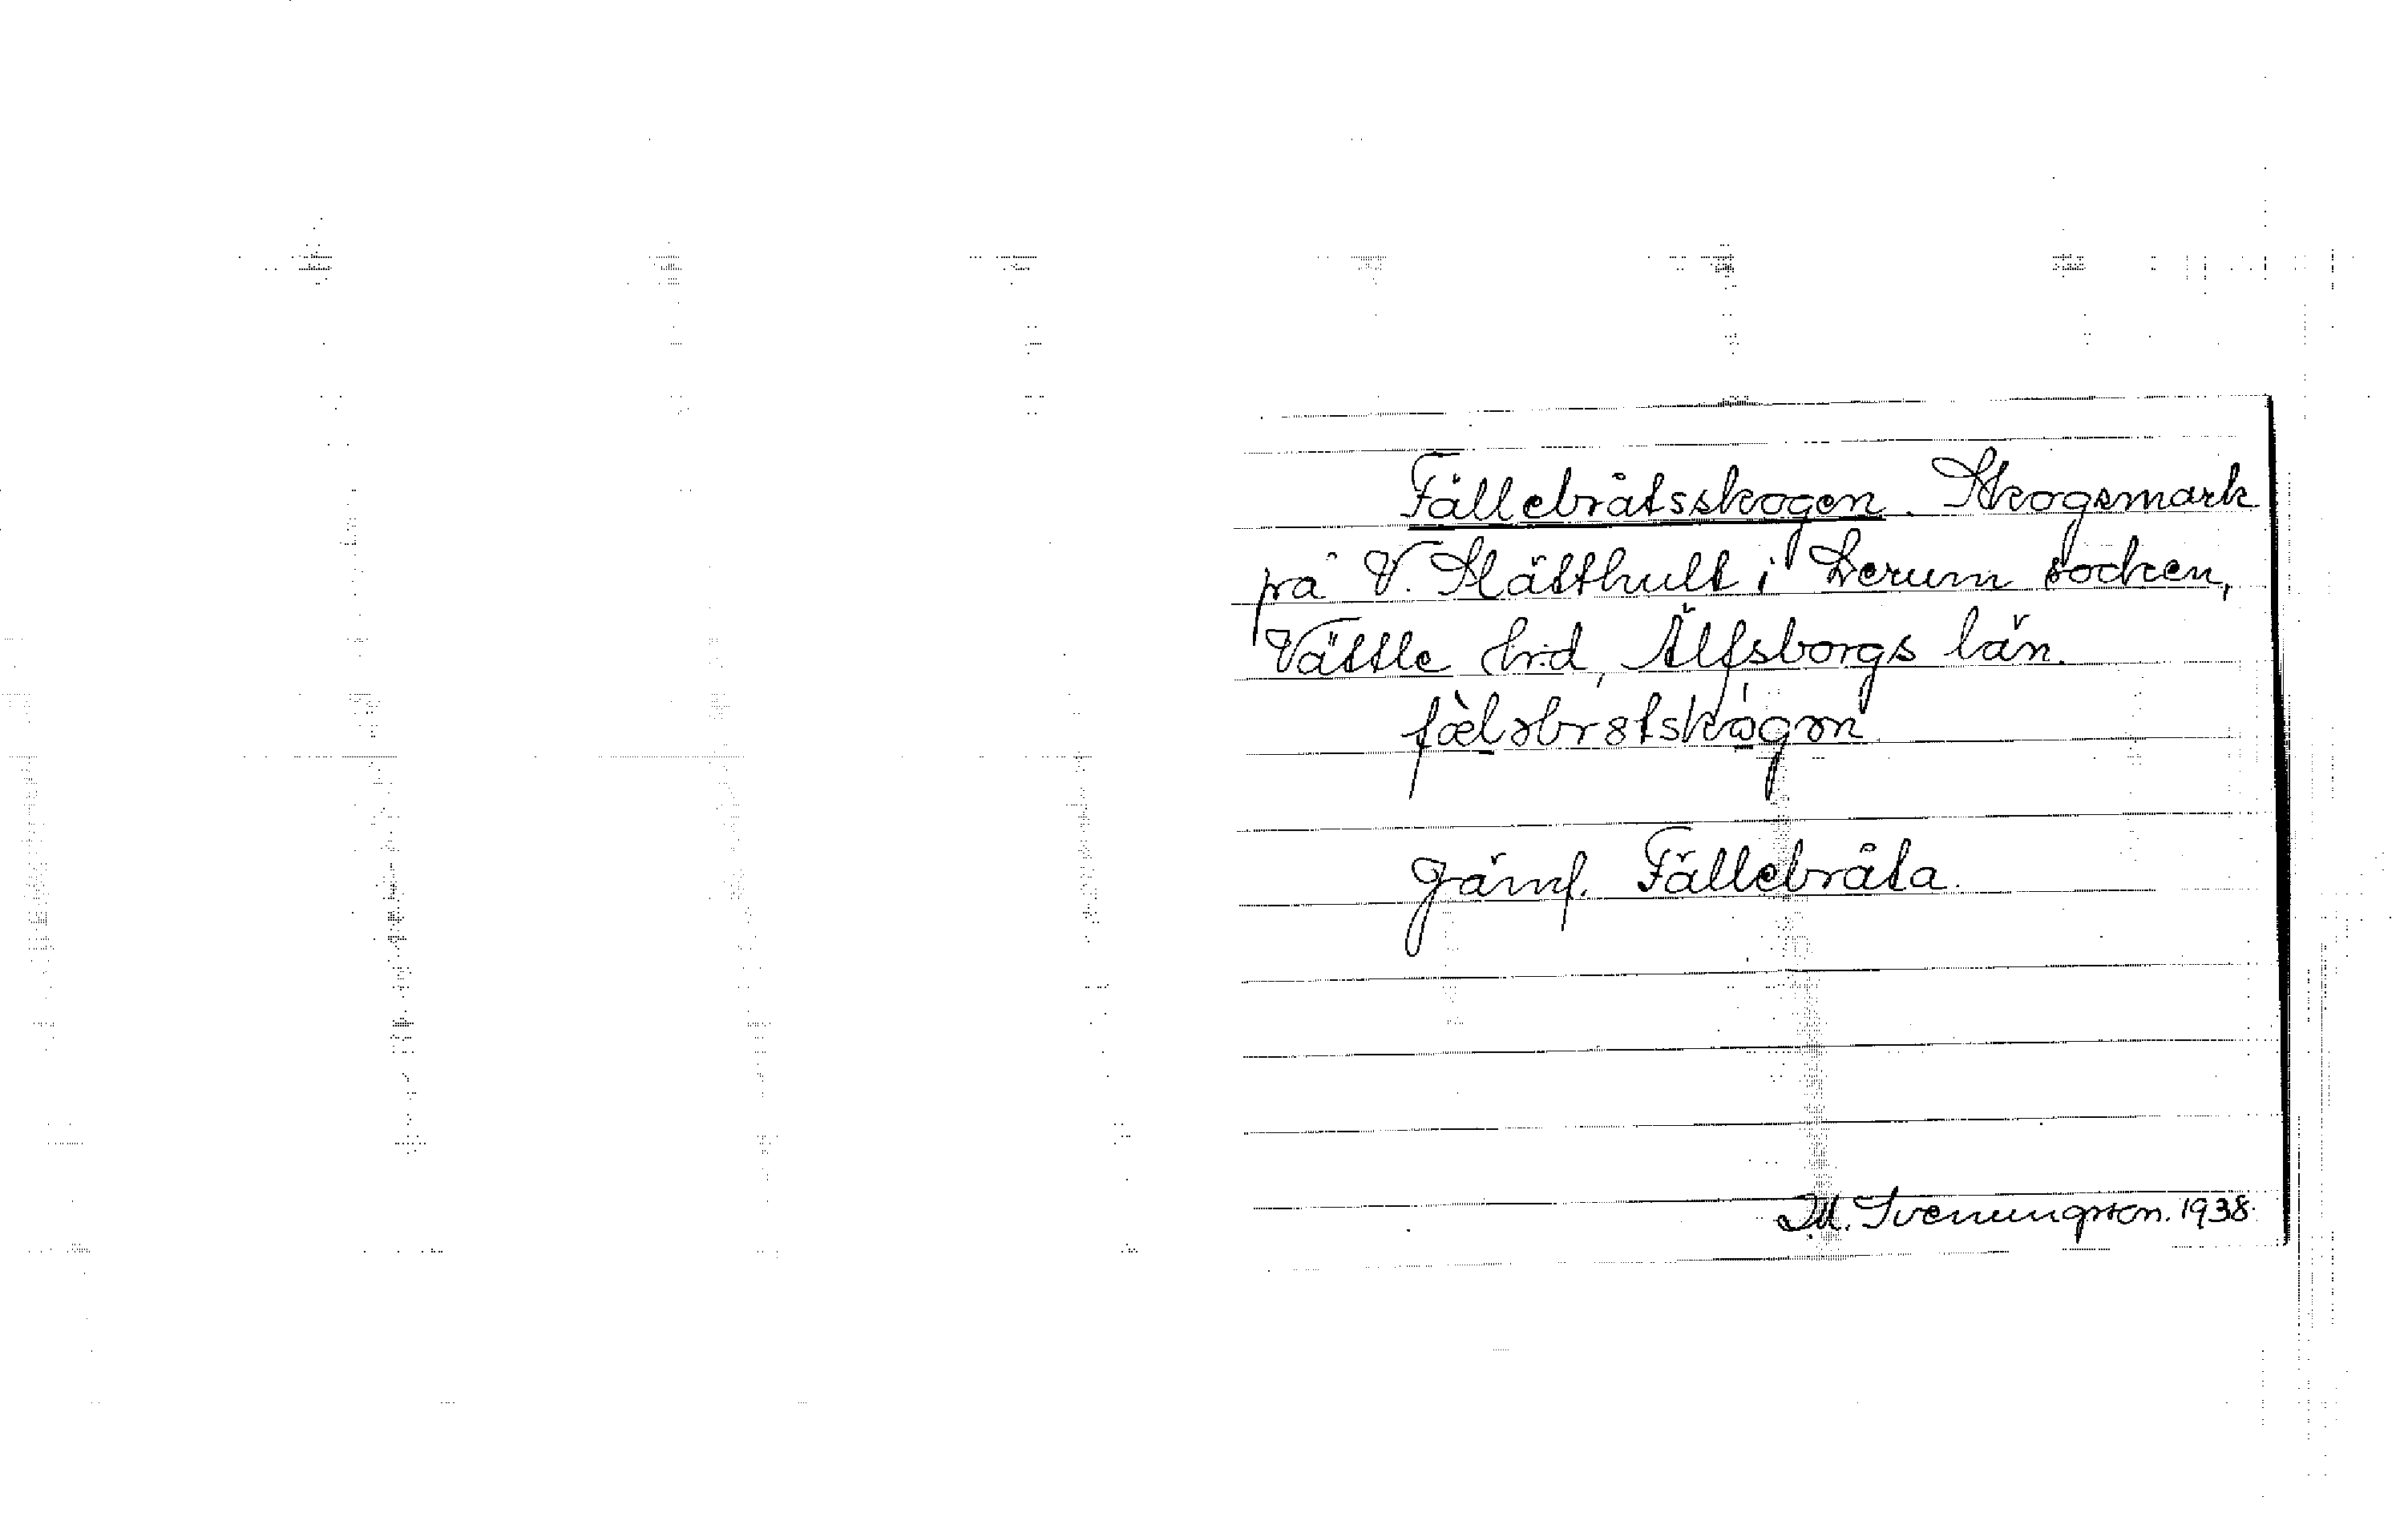 Fällebråtsskogen. Skogsmark
på V. Slätthult i Lerum socken,
Vättle hrd, Älfsborgs län.
fæ̀ləbrɑtskógən
Jämf. Fällebråta.
M. Svenungsson. 1938.